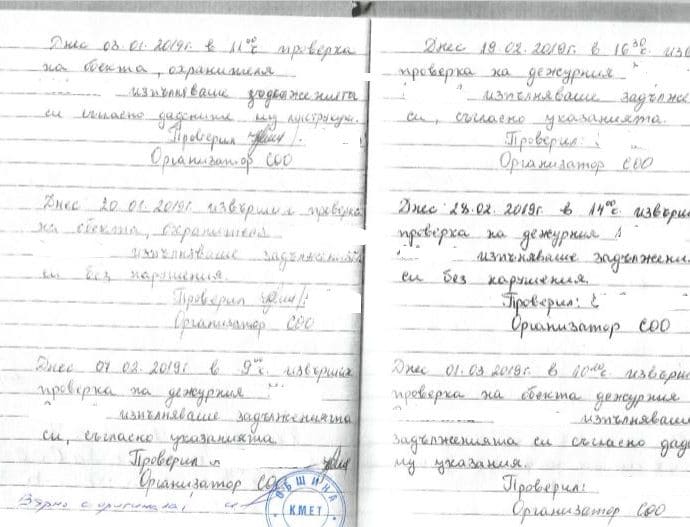 Днес 03.01.2019г. в 11⁰⁰ч. проверка
на обекта, охранителя
изпълняваше задълженията
си съгласно дадените му инструкции.
Проверил
Организатор СОО
Днес 20.01.2019г. извърших проверка
на обекта, охранителя
изпълняваше задълженията
си без нарушения.
Проверил
Организатор СОО
Днес 07.02.2019г. в 9⁰⁰ч. извърших
проверка на дежурния
изпълняваше задълженията
си, съгласно указанията
Проверил
Организатор СОО
Вярно с оригинала!
ОБЩИНА
КМЕТ
Днес 19.02.2019г. в 16³⁰ч. изв
проверка на дежурния
изпълняваше задълже
си, съгласно указанията.
Проверил:
Организатор СОО
Днес 28.02.2019г. в 14⁰⁰ч. извърш
проверка на дежурния
изпълняваше задължени
си без нарушения.
Проверил:
Организатор СОО
Днес 01.03.2019г. в извърш
проверка на обекта дежурния
изпълняваш
задълженията си съгласно дад
му указания.
Проверил:
Организатор СОО